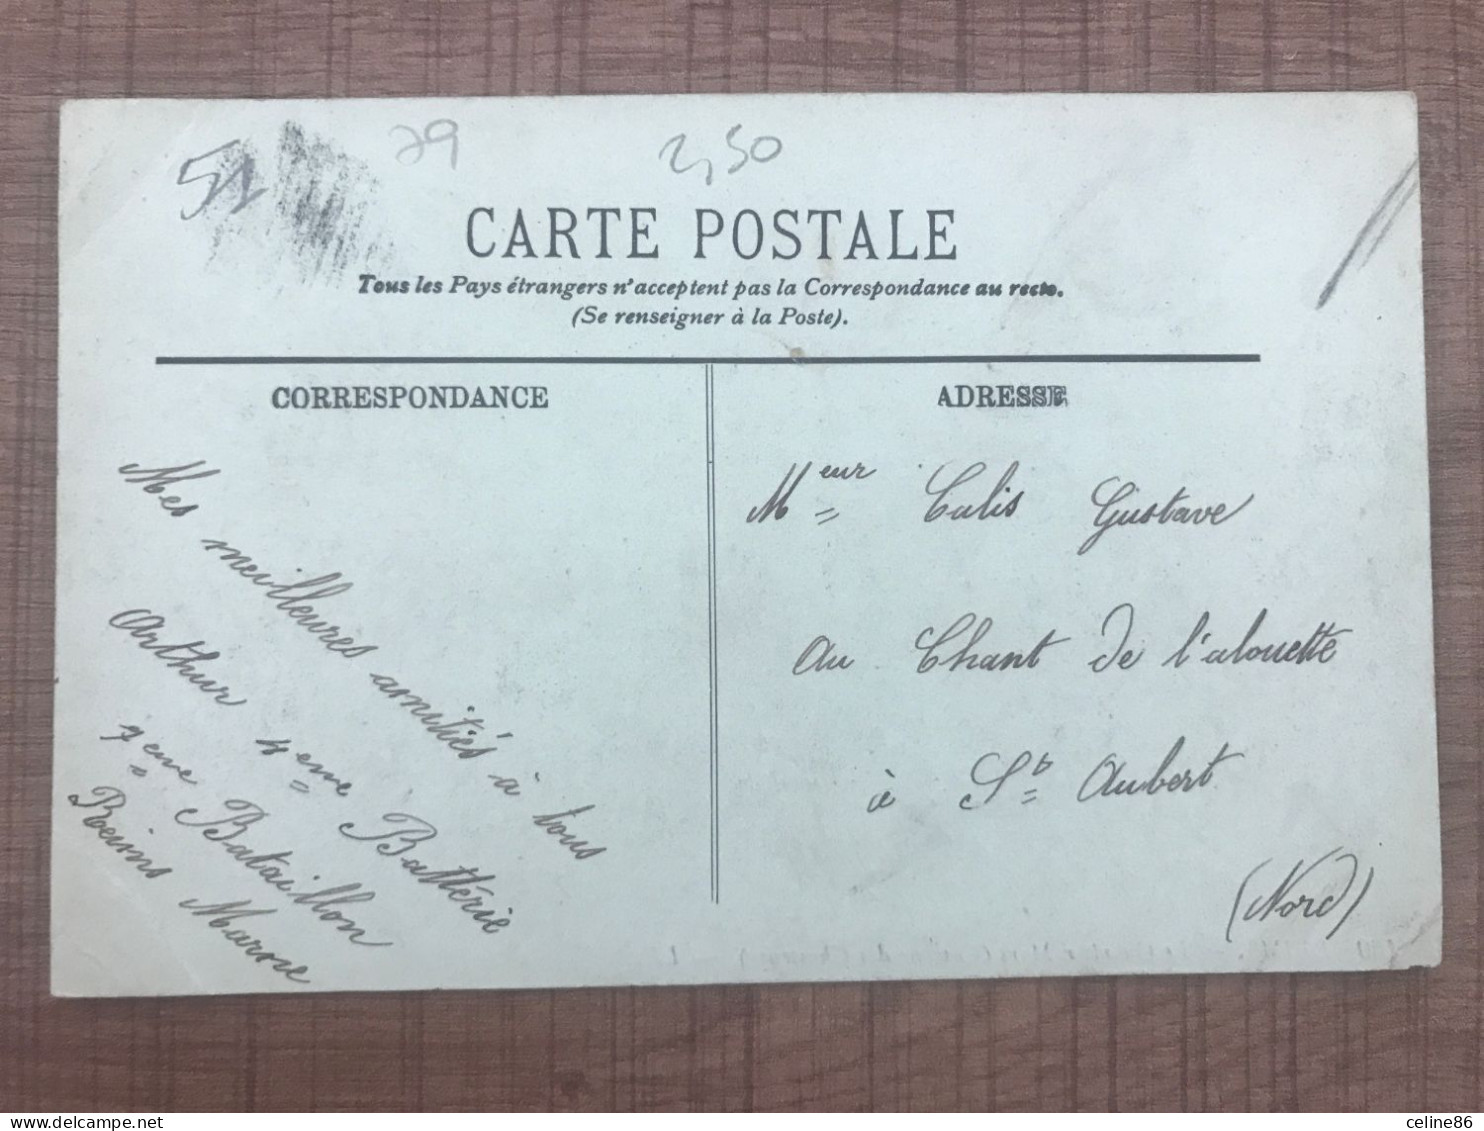 51
79
2,50
CARTE POSTALE
Tous les Pays étrangers n'acceptent pas la Correspondance au recto.
(Se renseigner à la Poste).
CORRESPONDANCE
Mes meilleures amitiés à tous
Arthur 4eme Battérie
7eme Bataillon
Reims Marne
ADRESSE
Meur Calis Gustave
au Chant de l'alouette
à St Aubert
(Nord)
celine86